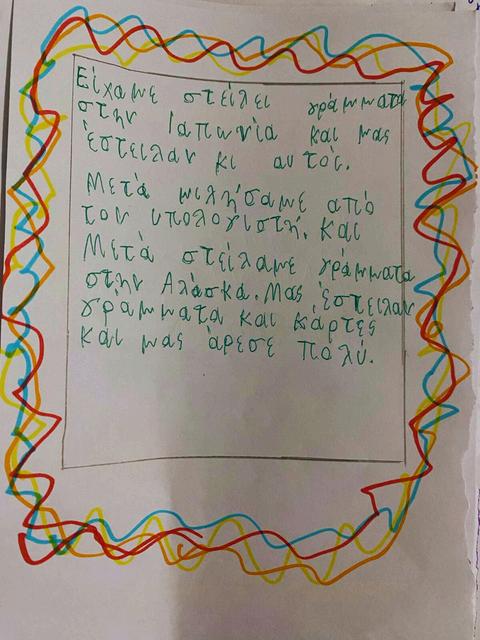 Είχαμε στείλει γράμματα
στην Ιαπωνία και μας
έστειλαν κι αυτοί.
Μετά μιλήσαμε από
τον υπολογιστή. Και
Μετά στείλαμε γράμματα
στην Αλάσκα. Μας έστειλαν
γράμματα και κάρτες
και μας άρεσε πολύ.